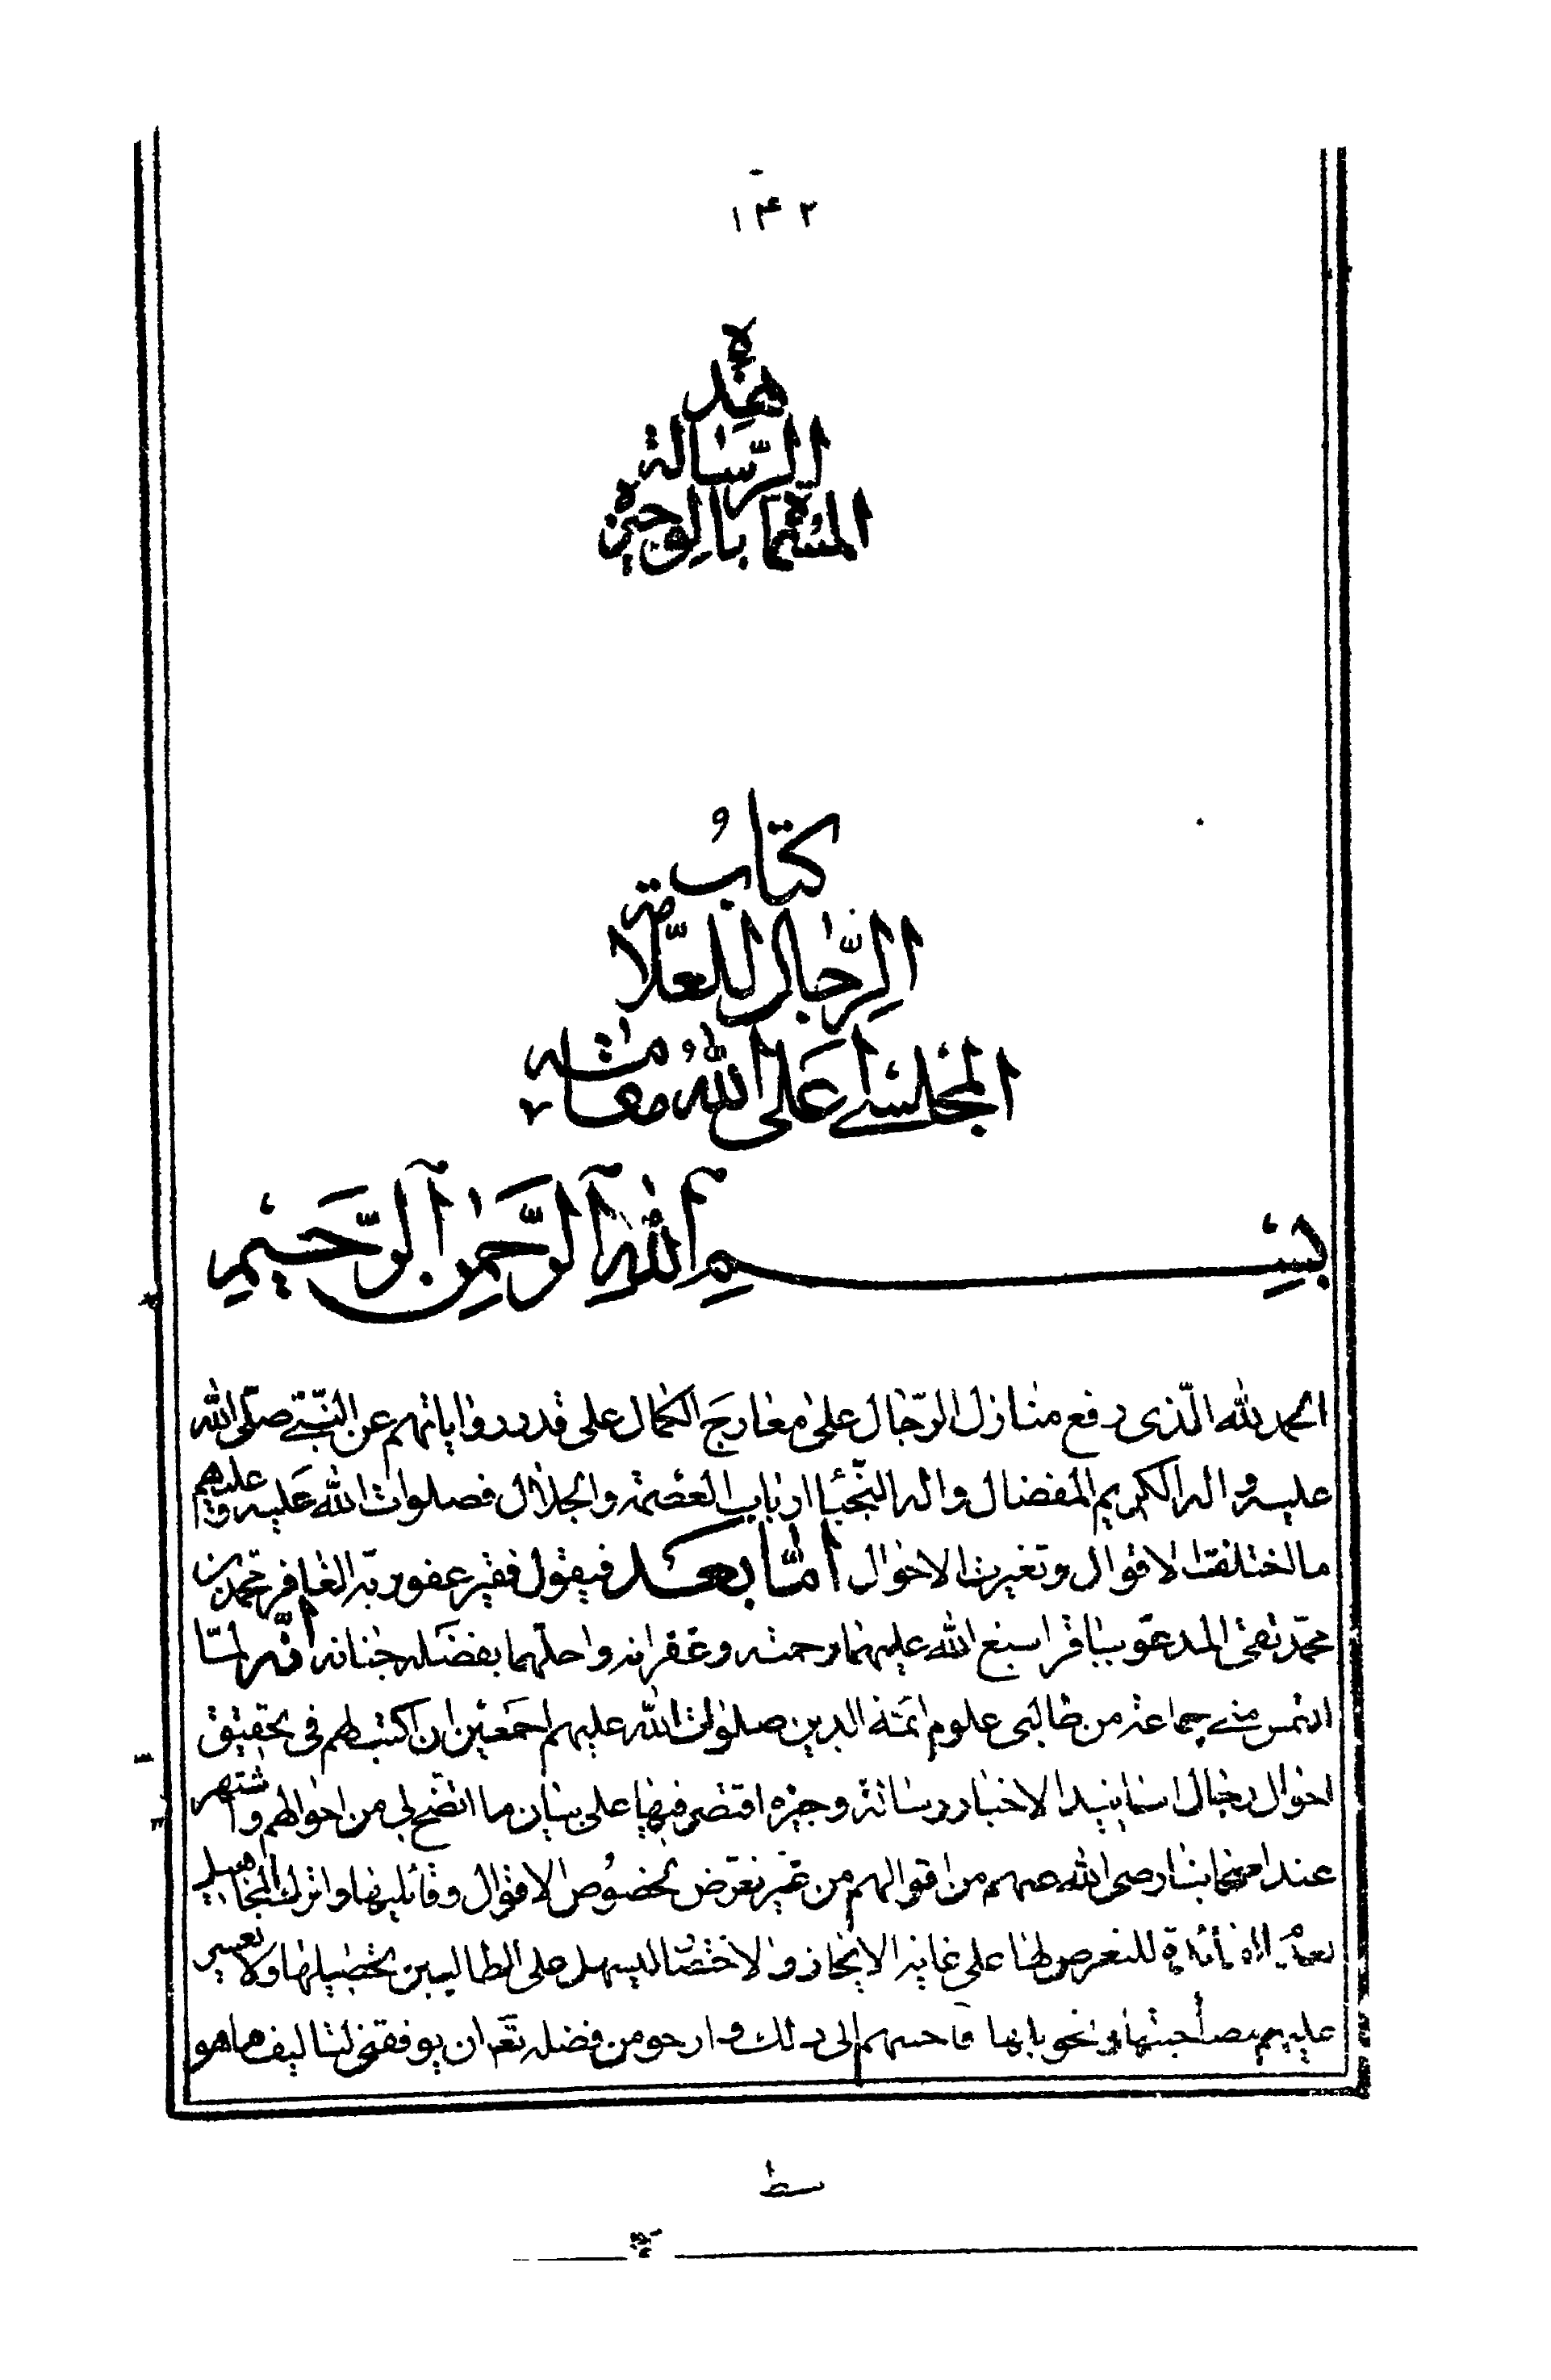 ١۴٢
هذه
الرّسالة
المسمّاة بالوجیزه
كتابُ
الرّجال للعلّامة
المجلسے اَعلى اللهُ مقامه
بسم الله الرّحمن الرّحیم
الحمد لله الّذی رفع منازل الرّجال علی معارج الكمال علی قدر روایاتهم عن النبیّ صلّی الله
علیه واله الكریم المفضال واله النجبا ارباب العصمة والجلال فصلوات الله علیه وعلیهم
ما اختلفت الاقوال وتغیرت الاحوال امّا بعد فیقول فقیر عفو ربّه الغافر محمّد بن
محمّد تقی المدعوّ بباقر اسبغ الله علیهما رحمته وغفرانه واحلّهما بفضله جنانه انّه لمّا
التمس منے جماعة من طالبی علوم ائمّة الدین صلوات الله علیهم اجمعین ان اكتب لهم فی تحقیق
احوال رجال اسانید الاخبار رسالة وجیزه اقتصر فیها علی بیان ما اتّضح لی من احوالهم واشتهر
عند اصحابنا رضی الله عنهم من اقوالهم من غیر تعرّض لخصوص الاقوال وقائلیها واترك المجاهیل
لعدم الفائدة للتعرض لها علی غایة الایجاز والاختصار لیسهل علی الطالبین تحصیلها ولا یعسر
علیهم مصاحبتها وتحویلها فاجبتهم الی ذلك وارجو من فضله تعَ ان یوفقنی لتألیف ما هو
سط